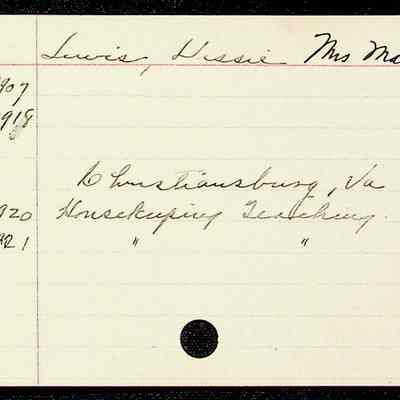 Lewis, Hessie Mrs Ma
907
919
Christiansburg, Va
920 Housekeeping Teaching.
921 " "